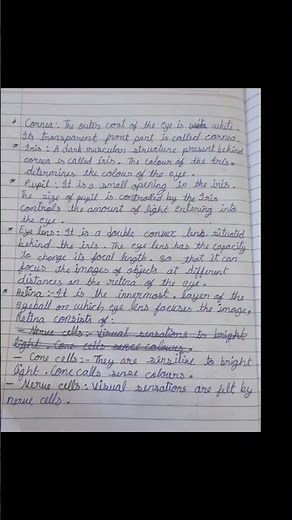 * Cornea:- The outer coat of the eye is white.
Its transparent front part is called cornea.
* Iris: A dark muscular structure present behind
cornea is called iris. The colour of the Iris.
determines the colour of the eye.
* Pupil: It is a small opening in the iris.
The size of pupil is controlled by the Iris
controls the amount of light entering into
the eye.
* Eye lens: It is a double convex lens situated
behind the iris. The eye lens has the capacity
to change its focal length. So that it can
focus the images of objects at different
distances on the retina of the eye.
* Retina:- It is the innermost layer of the
Eyeball on which eye lens focuses the image,
Retina consists of:
- Nerve cells:- Visual sensations to bright
light. Cone cells sence colours.
- Cone cells:- They are sensitive to bright
light. Cone calls sense colours.
- Nerve cells:- Visual sensations are felt by
nerve cells.